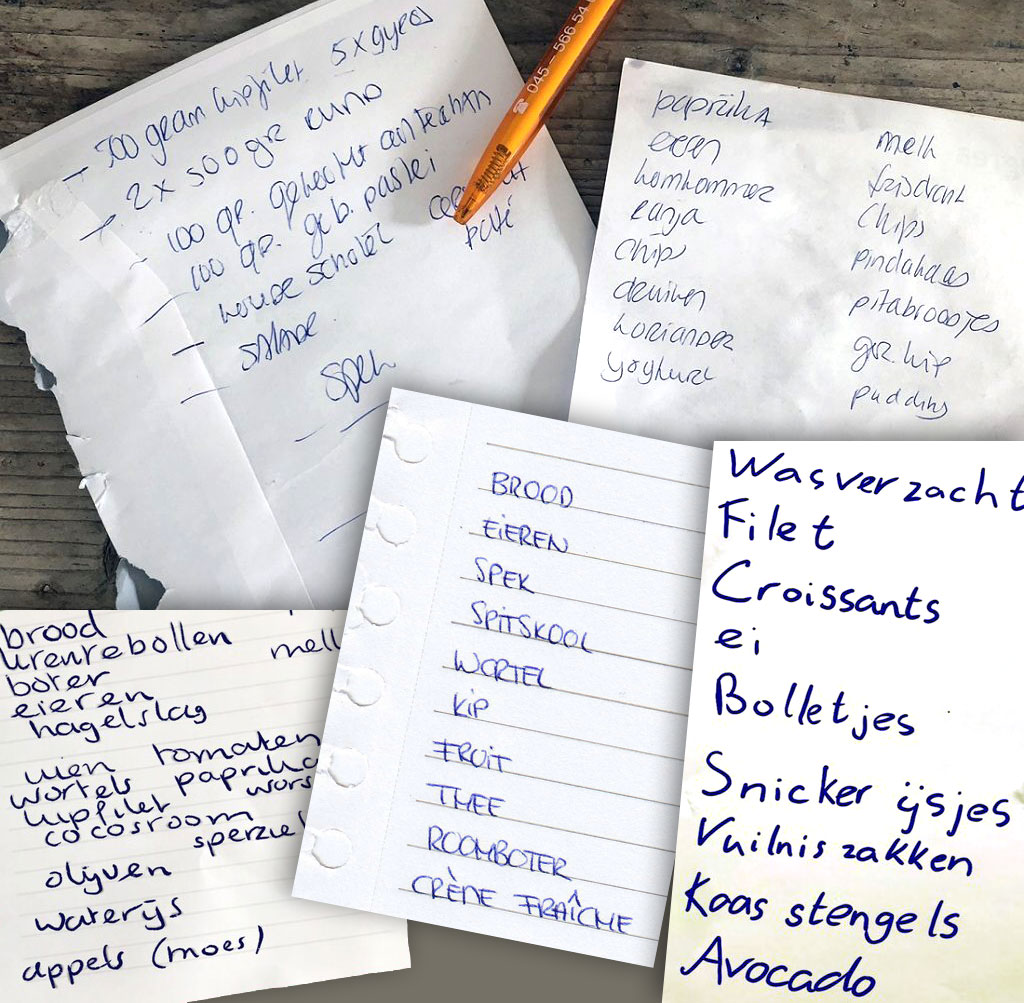 - 500 gram kipfilet 5 x gyros
- 2 x 500 gr
- 100 gr. gehakt
- 100 gr. geb. pastei
- schotel
paté
- salade
- spek
045 - 566 54
paprika
eieren
komkommer
ranja
chips
druiven
koriander
yoghurt
melk
frisdrank
Chips
pindakaas
pitabroodjes
kip
pudding
BROOD
EIEREN
SPEK
SPITSKOOL
WORTEL
KIP
FRUIT
THEE
ROOMBOTER
CRÈME FRAÎCHE
Wasverzacht
Filet
Croissants
ei
Bolletjes
Snicker ijsjes
Vuilniszakken
Kaas stengels
Avocado
brood
krentebollen melk
boter
eieren
hagelslag
uien tomaten
wortels paprika
kipfilet wors
cocosroom
sperzie
olijven
waterijs
appels (moes)